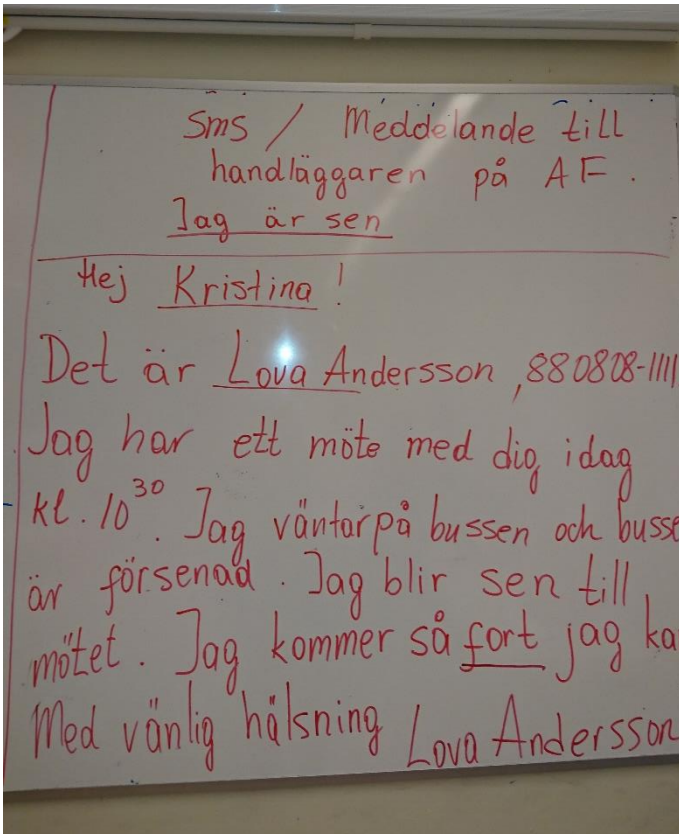 Sms / Meddelande till
handläggaren på AF.
Jag är sen
Hej Kristina!
Det är Lova Andersson, 880808-1111
Jag har ett möte med dig idag
kl. 10 30. Jag väntar på bussen och busse
är försenad. Jag blir sen till
mötet. Jag kommer så fort jag ka
Med vänlig hälsning Lova Andersson